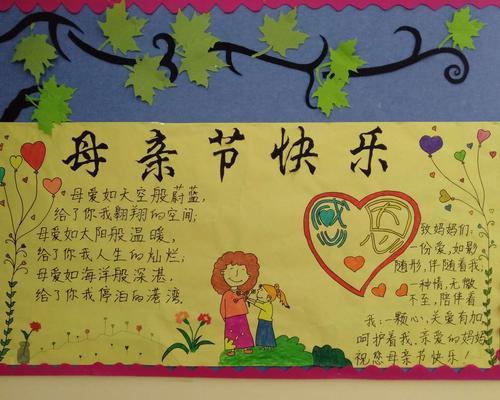 母亲节快乐
母爱如天空般蔚蓝,
给了你我翱翔的空间;
母爱如太阳般温暖,
给了你我人生的灿烂;
母爱如海洋般深湛,
给了你我停泊的港湾
感恩
致妈妈们:
一份爱,如影
随形,伴随着我
一种情,无微
不至,陪伴着
我;一颗心,关爱有加
呵护着我,亲爱的妈妈
祝您母亲节快乐!